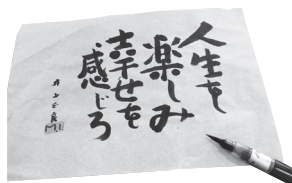 人生を
楽しみ
幸せを
感じろ